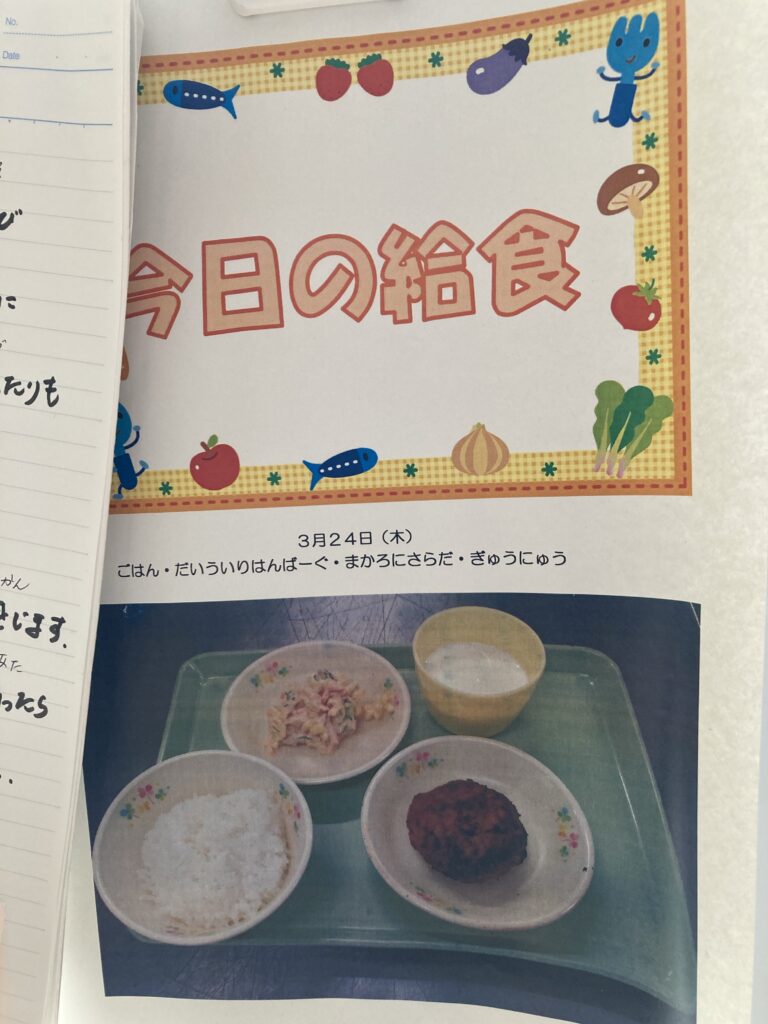 No.
Date
び
に
たりも
かん
じます。
ったら
今日の給食
3月24日（木）
ごはん・だいういりはんばーぐ・まかろにさらだ・ぎゅうにゅう